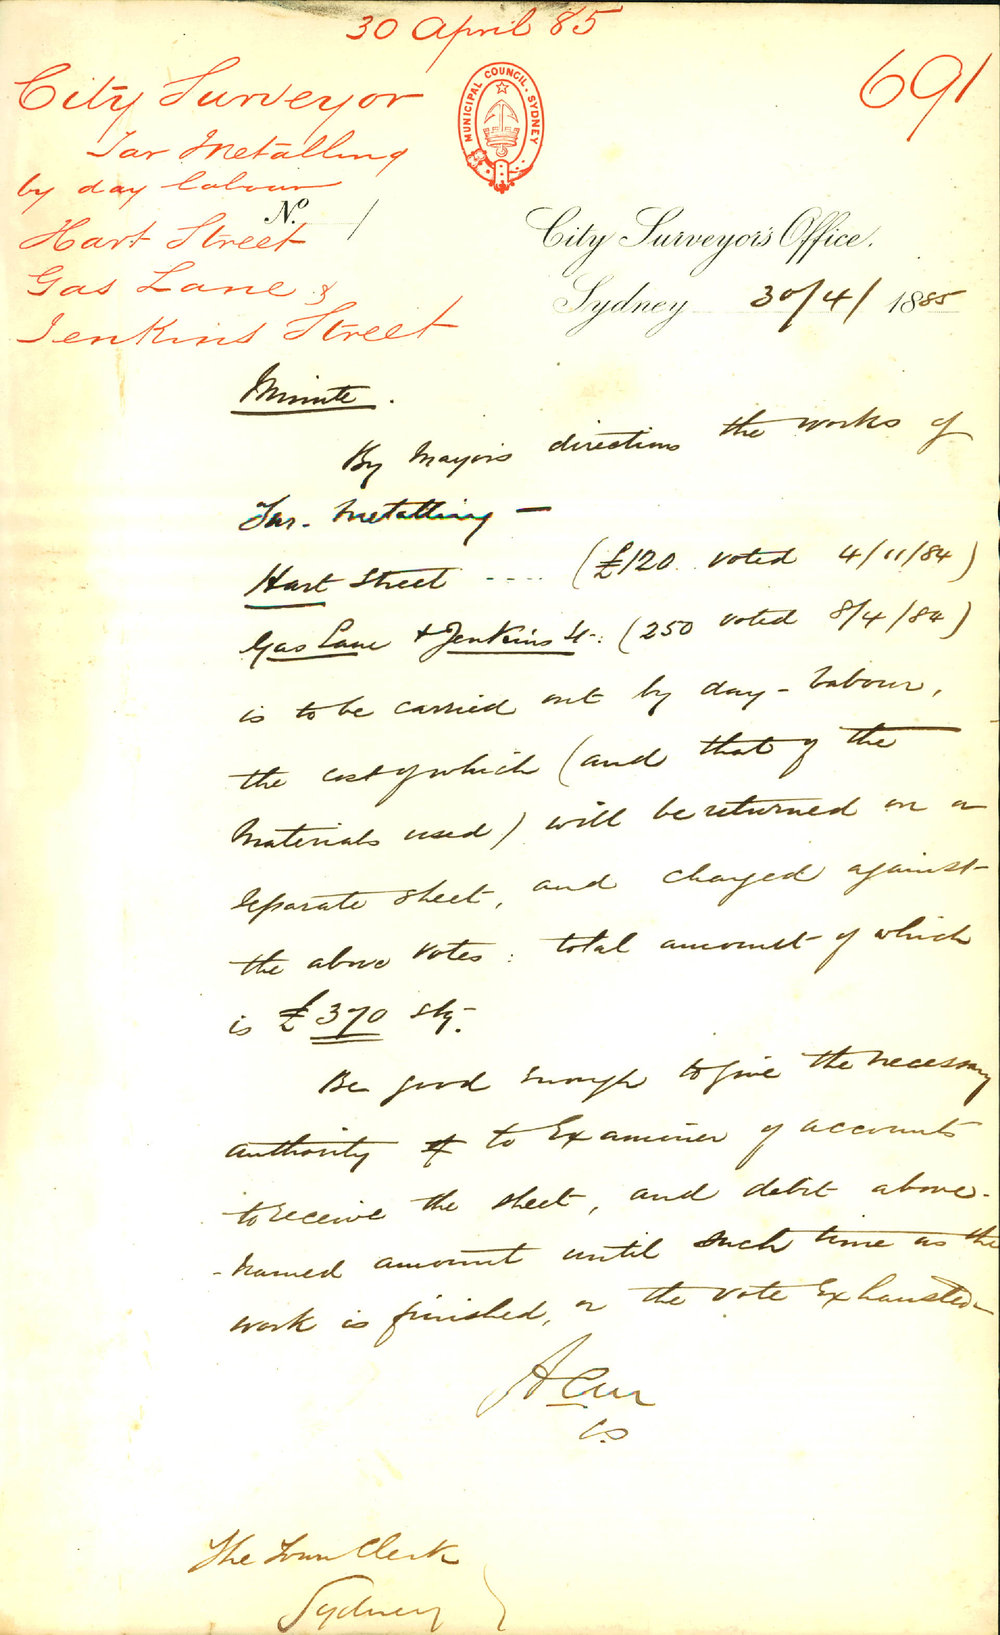 30 April 85
691
City Surveyor
Tar Metalling
by day labour
Hart Street
Gas Lane &
Jenkins Street
MUNICIPAL COUNCIL. SYDNEY
No.
City Surveyor's Office.
Sydney 30/4/ 1885
Minute.
By Mayors directions the works of
Tar-Metalling —
Hart Street .... (£120 voted 4/11/84)
Gas Lane & Jenkins St: (250 voted 8/4/84)
is to be carried out by day-labour,
the cost of which (and that of the
materials used) will be returned on a
separate sheet, and charged against
the above votes: total amount of which
is £370 stg.
Be good enough to give the necessary
authority to Examiner of accounts
to receive the sheet, and debit above-
-named amount until such time as the
work is finished, or the vote exhausted
CS
The Town Clerk
Sydney